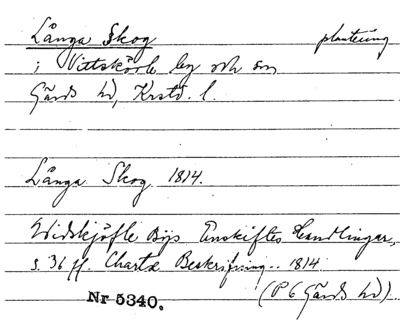 Långa Skog plantering
i Vittskövle by och sn
Gärds hd, Krstd. l.
Långa Skog 1814.
Widskjöfle Bys Enskiftes Handlingar,
s. 36 ff. Charta Beskrifning.. 1814
(P 6 Gärds hd)
Nr 5340.